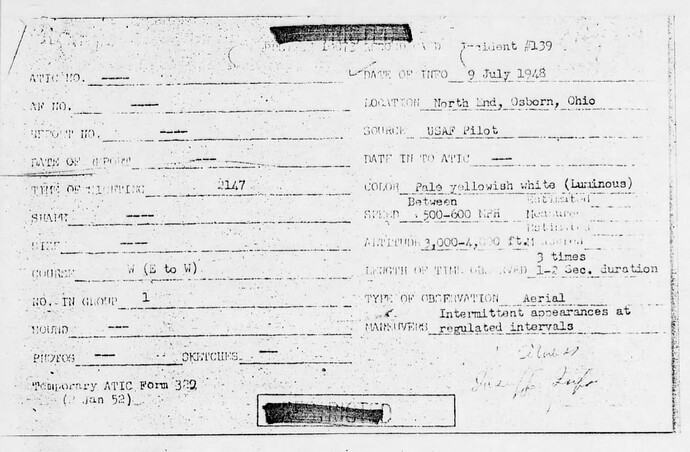 Incident #139
ATIC NO. ---
DATE OF INFO 9 July 1948
AF NO. ---
LOCATION North End, Osborn, Ohio
REPORT NO. ---
SOURCE USAF Pilot
DATE OF REPORT ---
DATE IN TO ATIC ---
TIME OF SIGHTING 2147
COLOR Pale yellowish white (Luminous)
SHAPE ---
SPEED Between 500-600 MPH Estimated Measured
SIZE ---
ALTITUDE 3,000-4,000 ft. Estimated Measured
COURSE W (E to W)
LENGTH OF TIME OBSERVED 3 times 1-2 Sec. duration
NO. IN GROUP 1
TYPE OF OBSERVATION Aerial
SOUND ---
MANEUVERS Intermittent appearances at regulated intervals
PHOTOS --- SKETCHES ---
Temporary ATIC Form 329
(2 Jan 52)